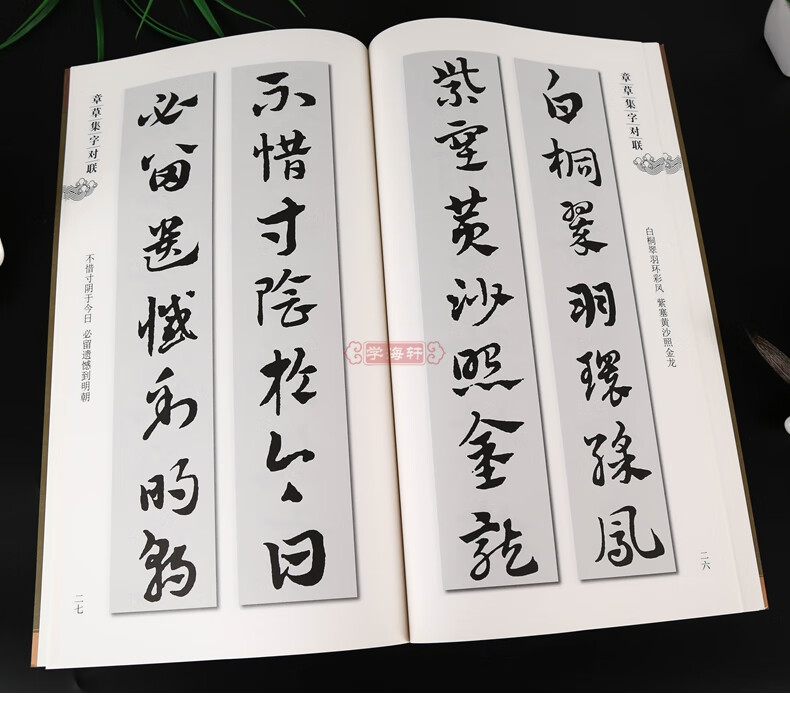 章草集字对联
白桐翠羽环彩凤 紫塞黄沙照金龙
白桐翠羽環綵鳳
紫塞黄沙照金龍
二六
不惜寸陰於今日
必留遗憾到明朝
章草集字对联
不惜寸阴于今日 必留遗憾到明朝
二七
学海轩